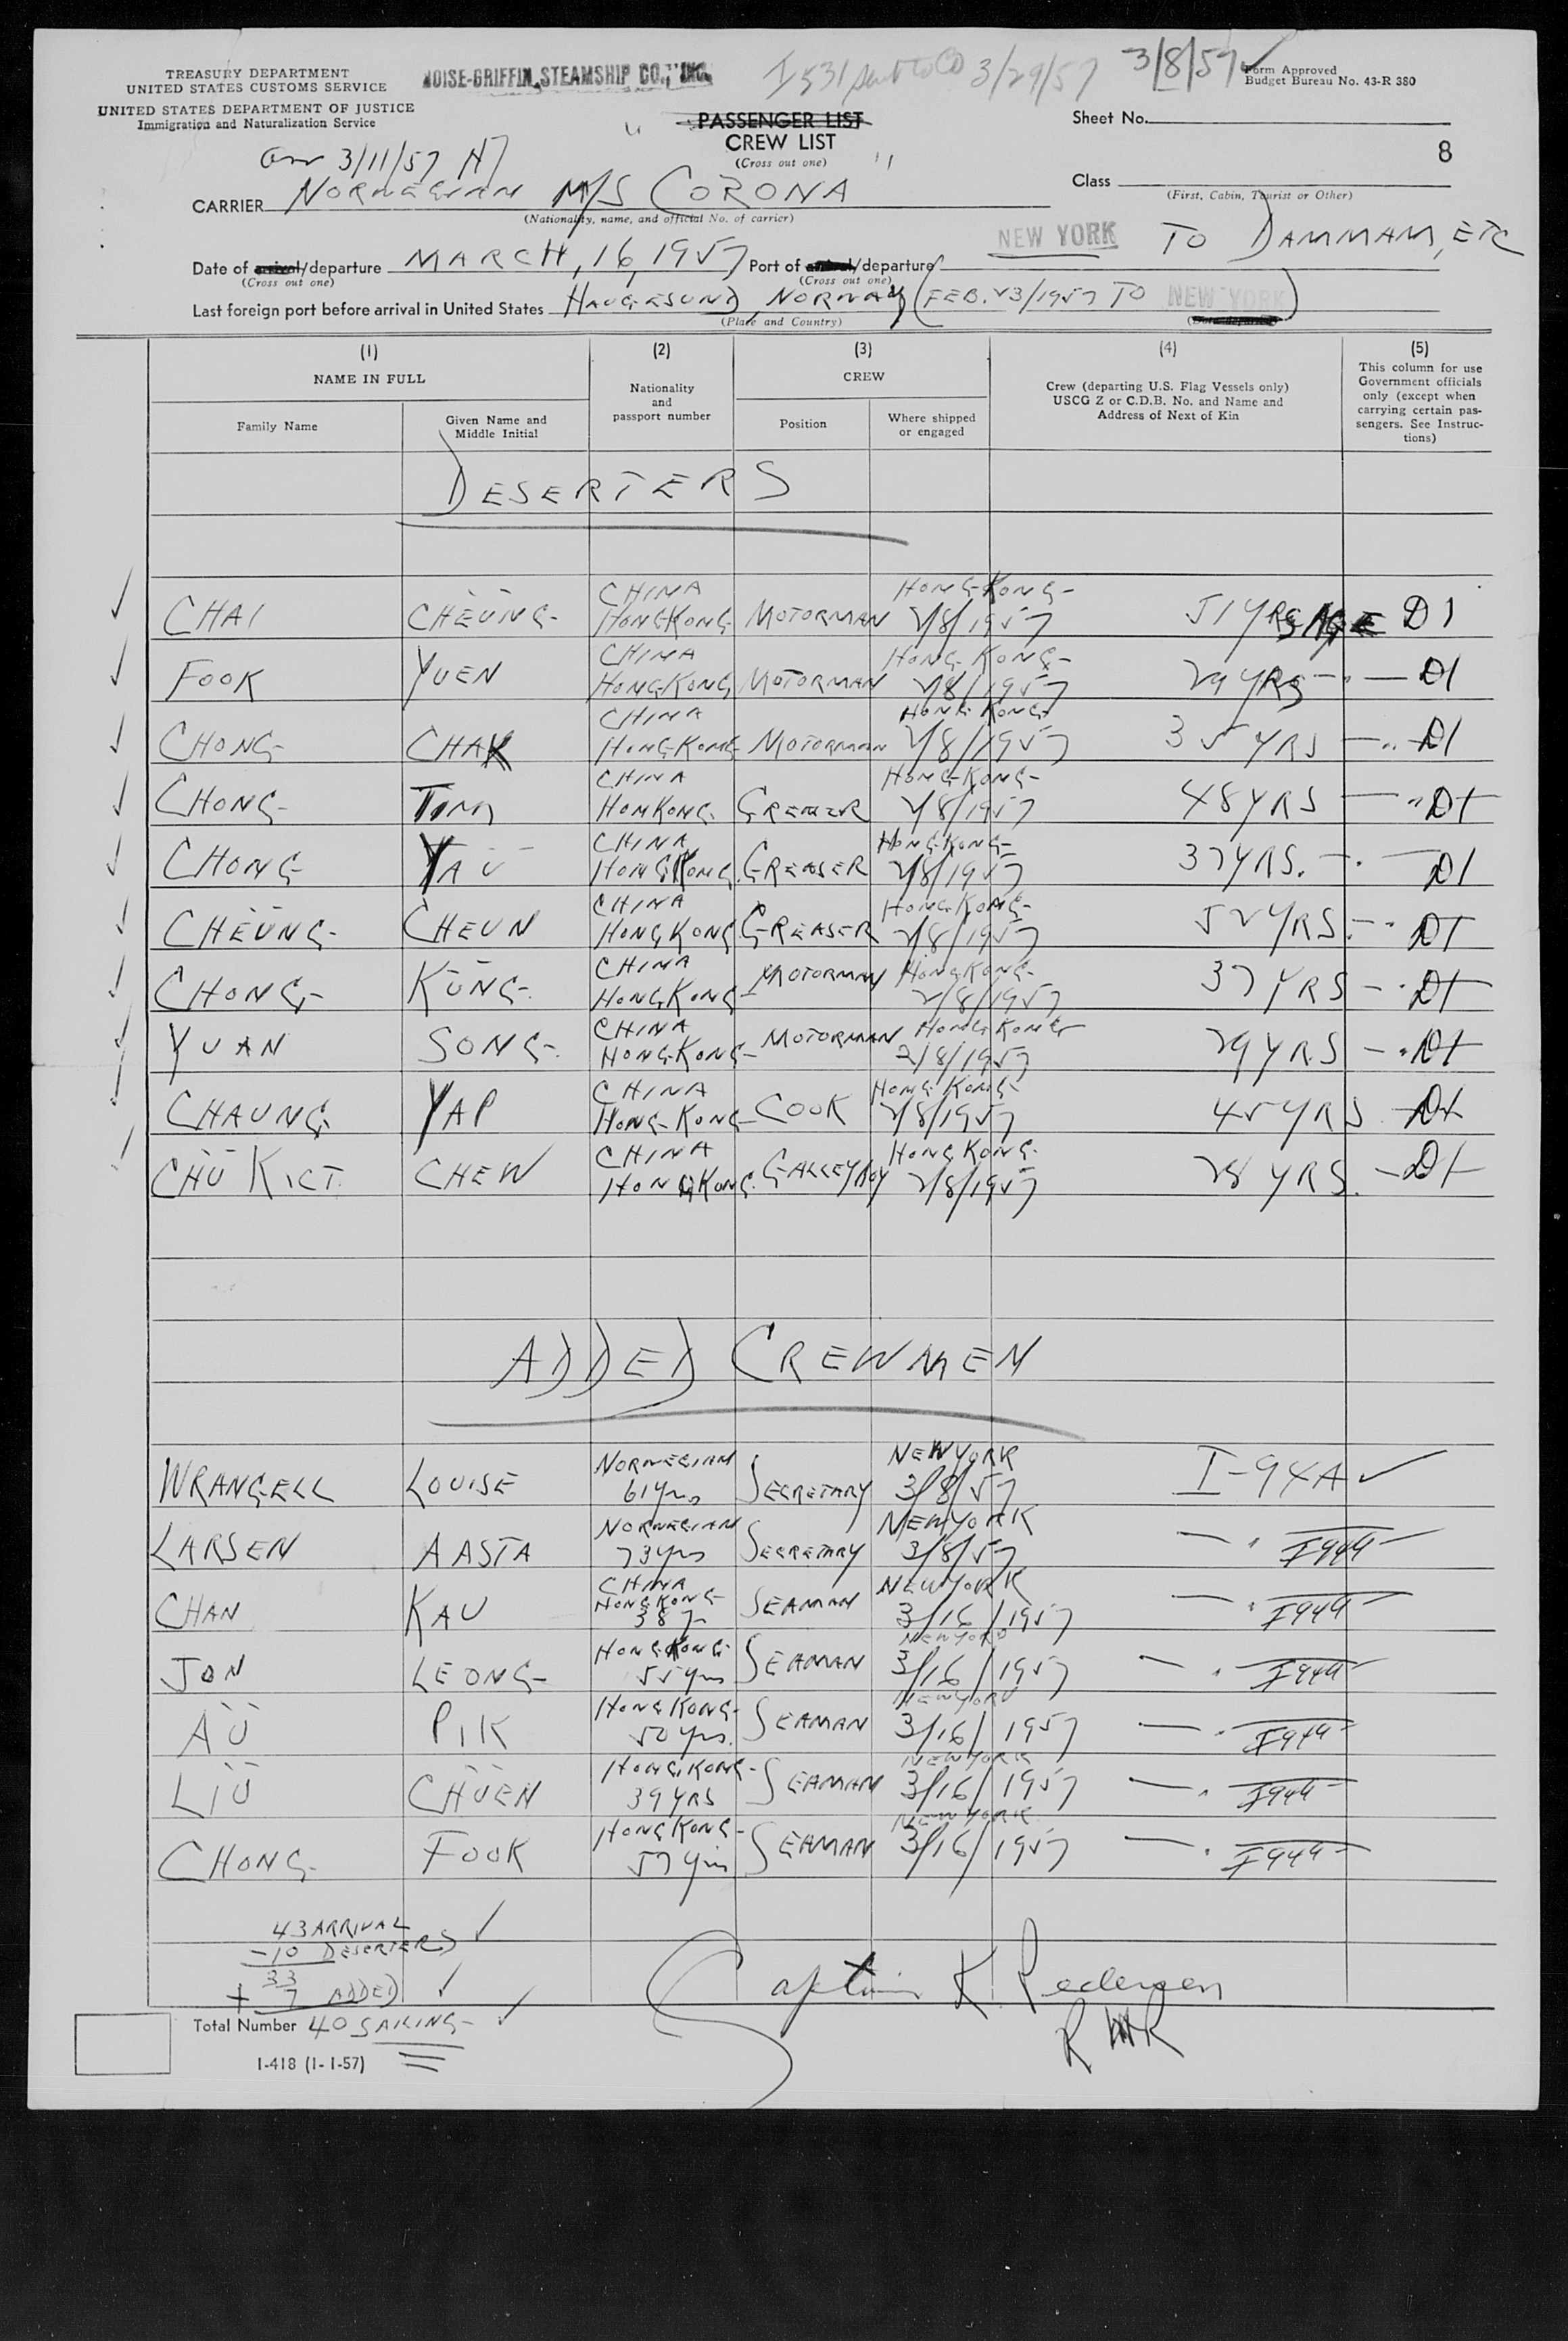 TREASURY DEPARTMENT
UNITED STATES CUSTOMS SERVICE
UNITED STATES DEPARTMENT OF JUSTICE
Immigration and Naturalization Service
NOISE-GRIFFIN STEAMSHIP CO., INC.
3/29/57
3/8/57
Form Approved
Budget Bureau No. 43-R 380
PASSENGER LIST
CREW LIST
(Cross out one)
Sheet No.
8
Class
(First, Cabin, Tourist or Other)
arr 3/11/57
CARRIER NORWEGIAN M/S CORONA
(Nationality, name, and official No. of carrier)
Date of arrival/departure MARCH, 16, 1957 Port of arrival/departure NEW YORK TO DAMMAM, ETC
(Cross out one) (Cross out one)
Last foreign port before arrival in United States HAUGESUND, NORWAY (FEB. 23/1957 TO NEW YORK)
(Place and Country) (Date departed)
(1) (2) (3) (4) (5)
NAME IN FULL
Family Name
Given Name and Middle Initial
Nationality and passport number
CREW
Position
Where shipped or engaged
Crew (departing U.S. Flag Vessels only) USCG Z or C.D.B. No. and Name and Address of Next of Kin
This column for use Government officials only (except when carrying certain passengers. See Instructions)
DESERTERS
CHAI CHEŪNG CHINA HONGKONG MOTORMAN HONG-KONG 2/8/1957 51 YRS AGE D1
FOOK YUEN CHINA HONGKONG MOTORMAN HONG KONG 2/8/1957 29 YRS —"— D1
CHONG CHAK CHINA HONGKONG MOTORMAN HONG KONG 2/8/1957 35 YRS —"— D1
CHONG TIM CHINA HONKONG GREASER HONG-KONG 2/8/1957 48 YRS —"— D1
CHONG YAŪ CHINA HONGKONG GREASER HONG-KONG 2/8/1957 37 YRS. —"— D1
CHEŪNG CHEUN CHINA HONGKONG GREASER HONGKONG 2/8/1957 52 YRS —"— D1
CHONG KŪNG CHINA HONGKONG MOTORMAN HONGKONG 2/8/1957 37 YRS —"— D1
YUAN SONG CHINA HONG-KONG MOTORMAN HONG KONG 2/8/1957 29 YRS —"— D1
CHAUNG YAP CHINA HONG-KONG COOK HONG KONG 2/8/1957 45 YRS D1
CHŪ KICT CHEW CHINA HONGKONG GALLEYBOY HONG KONG 2/8/1957 28 YRS. D1
ADDED CREWMEN
WRANGELL LOUISE NORWEGIAN 61 yrs SECRETARY NEW YORK 3/8/57 I-94A
LARSEN AASTA NORWEGIAN 73 yrs SECRETARY NEW YORK 3/8/57 —"— I94A
CHAN KAU CHINA HONGKONG 38 y SEAMAN NEW YORK 3/16/1957 —"— I94A
JON LEONG HONG KONG 55 yrs SEAMAN NEW YORK 3/16/1957 —"— I94A
AŪ PIK HONG KONG 50 yrs. SEAMAN NEW YORK 3/16/1957 —"— I94A
LIŪ CHŪEN HONG KONG 39 YRS SEAMAN NEW YORK 3/16/1957 —"— I94A
CHONG FOOK HONG KONG 57 yrs SEAMAN NEW YORK 3/16/1957 —"— I94A
43 ARRIVAL
-10 DESERTERS
33
+ 7 ADDED
Total Number 40 SAILING
Captain K. Pedersen
I-418 (1-1-57)